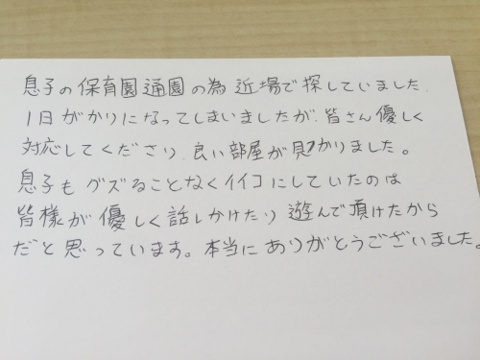 息子の保育園通園の為近場で探していました.
1日がかりになってしまいましたが、皆さん優しく
対応してくださり、良い部屋が見つかりました。
息子もグズることなくイイコにしていたのは
皆様が優しく話しかけたり遊んで頂けたから
だと思っています。本当にありがとうございました。